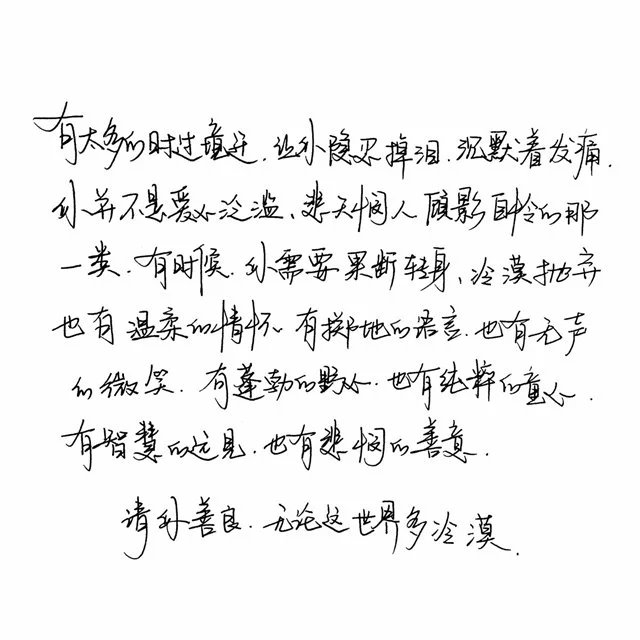 有太多的时过境迁.让你隐忍掉泪.沉默着发痛.
你并不是爱心泛滥、悲天悯人顾影自怜的那
一类.有时候.你需要果断转身、冷漠抛弃
也有温柔的情怀.有掷地的语言.也有无声
的微笑.有蓬勃的野心.也有纯粹的童心.
有智慧的远见.也有悲悯的善意.
请你善良.无论这世界多冷漠.